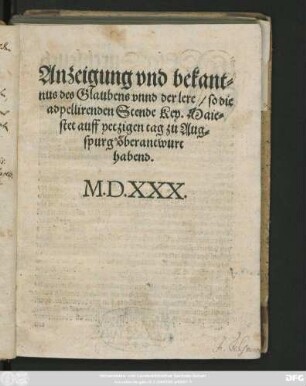 Anzeigung vnd bekant-
nus des Glaubens vnnd der lere / so die
adpellirenden Stende Key. Maie-
stet auff yetzigen tag zu Aug-
spurg öberantwurt
habend.
M.D.XXX.